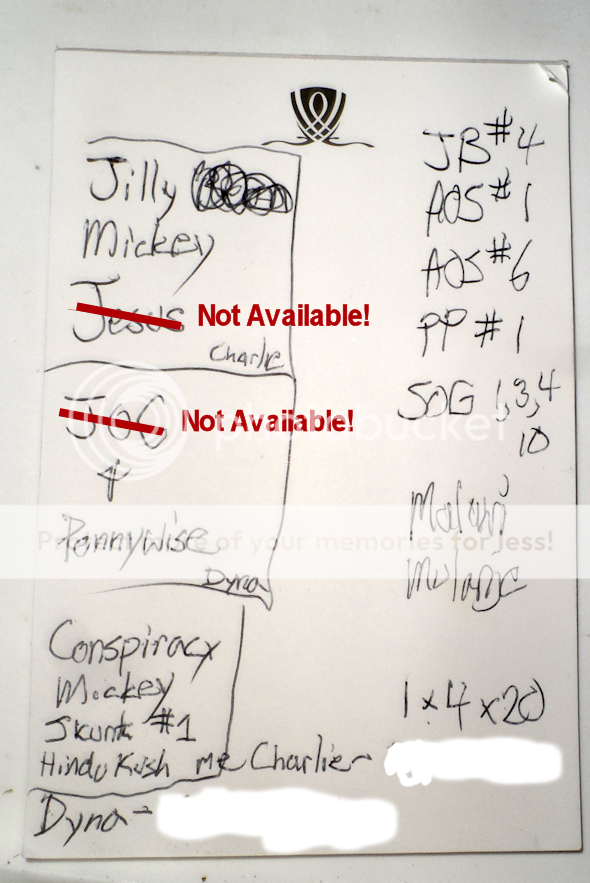 Jilly
Mickey
Jesus Not Available!
Charlie
JOG Not Available!
+
Pennywise
Dyna
Conspiracy
Mickey
Skunk #1
Hindu Kush me Charlie-
Dyna-
JB #4
AOS #1
AOS #6
PP #1
SOG 1,3,4
10
Malawi
Mulange
1x4x20
photobucket
of your memories for less!